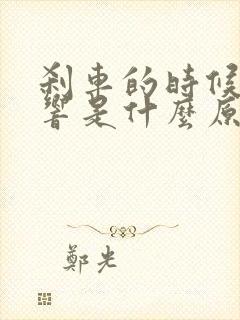 刹車的時候
響是什麼原
鄭光